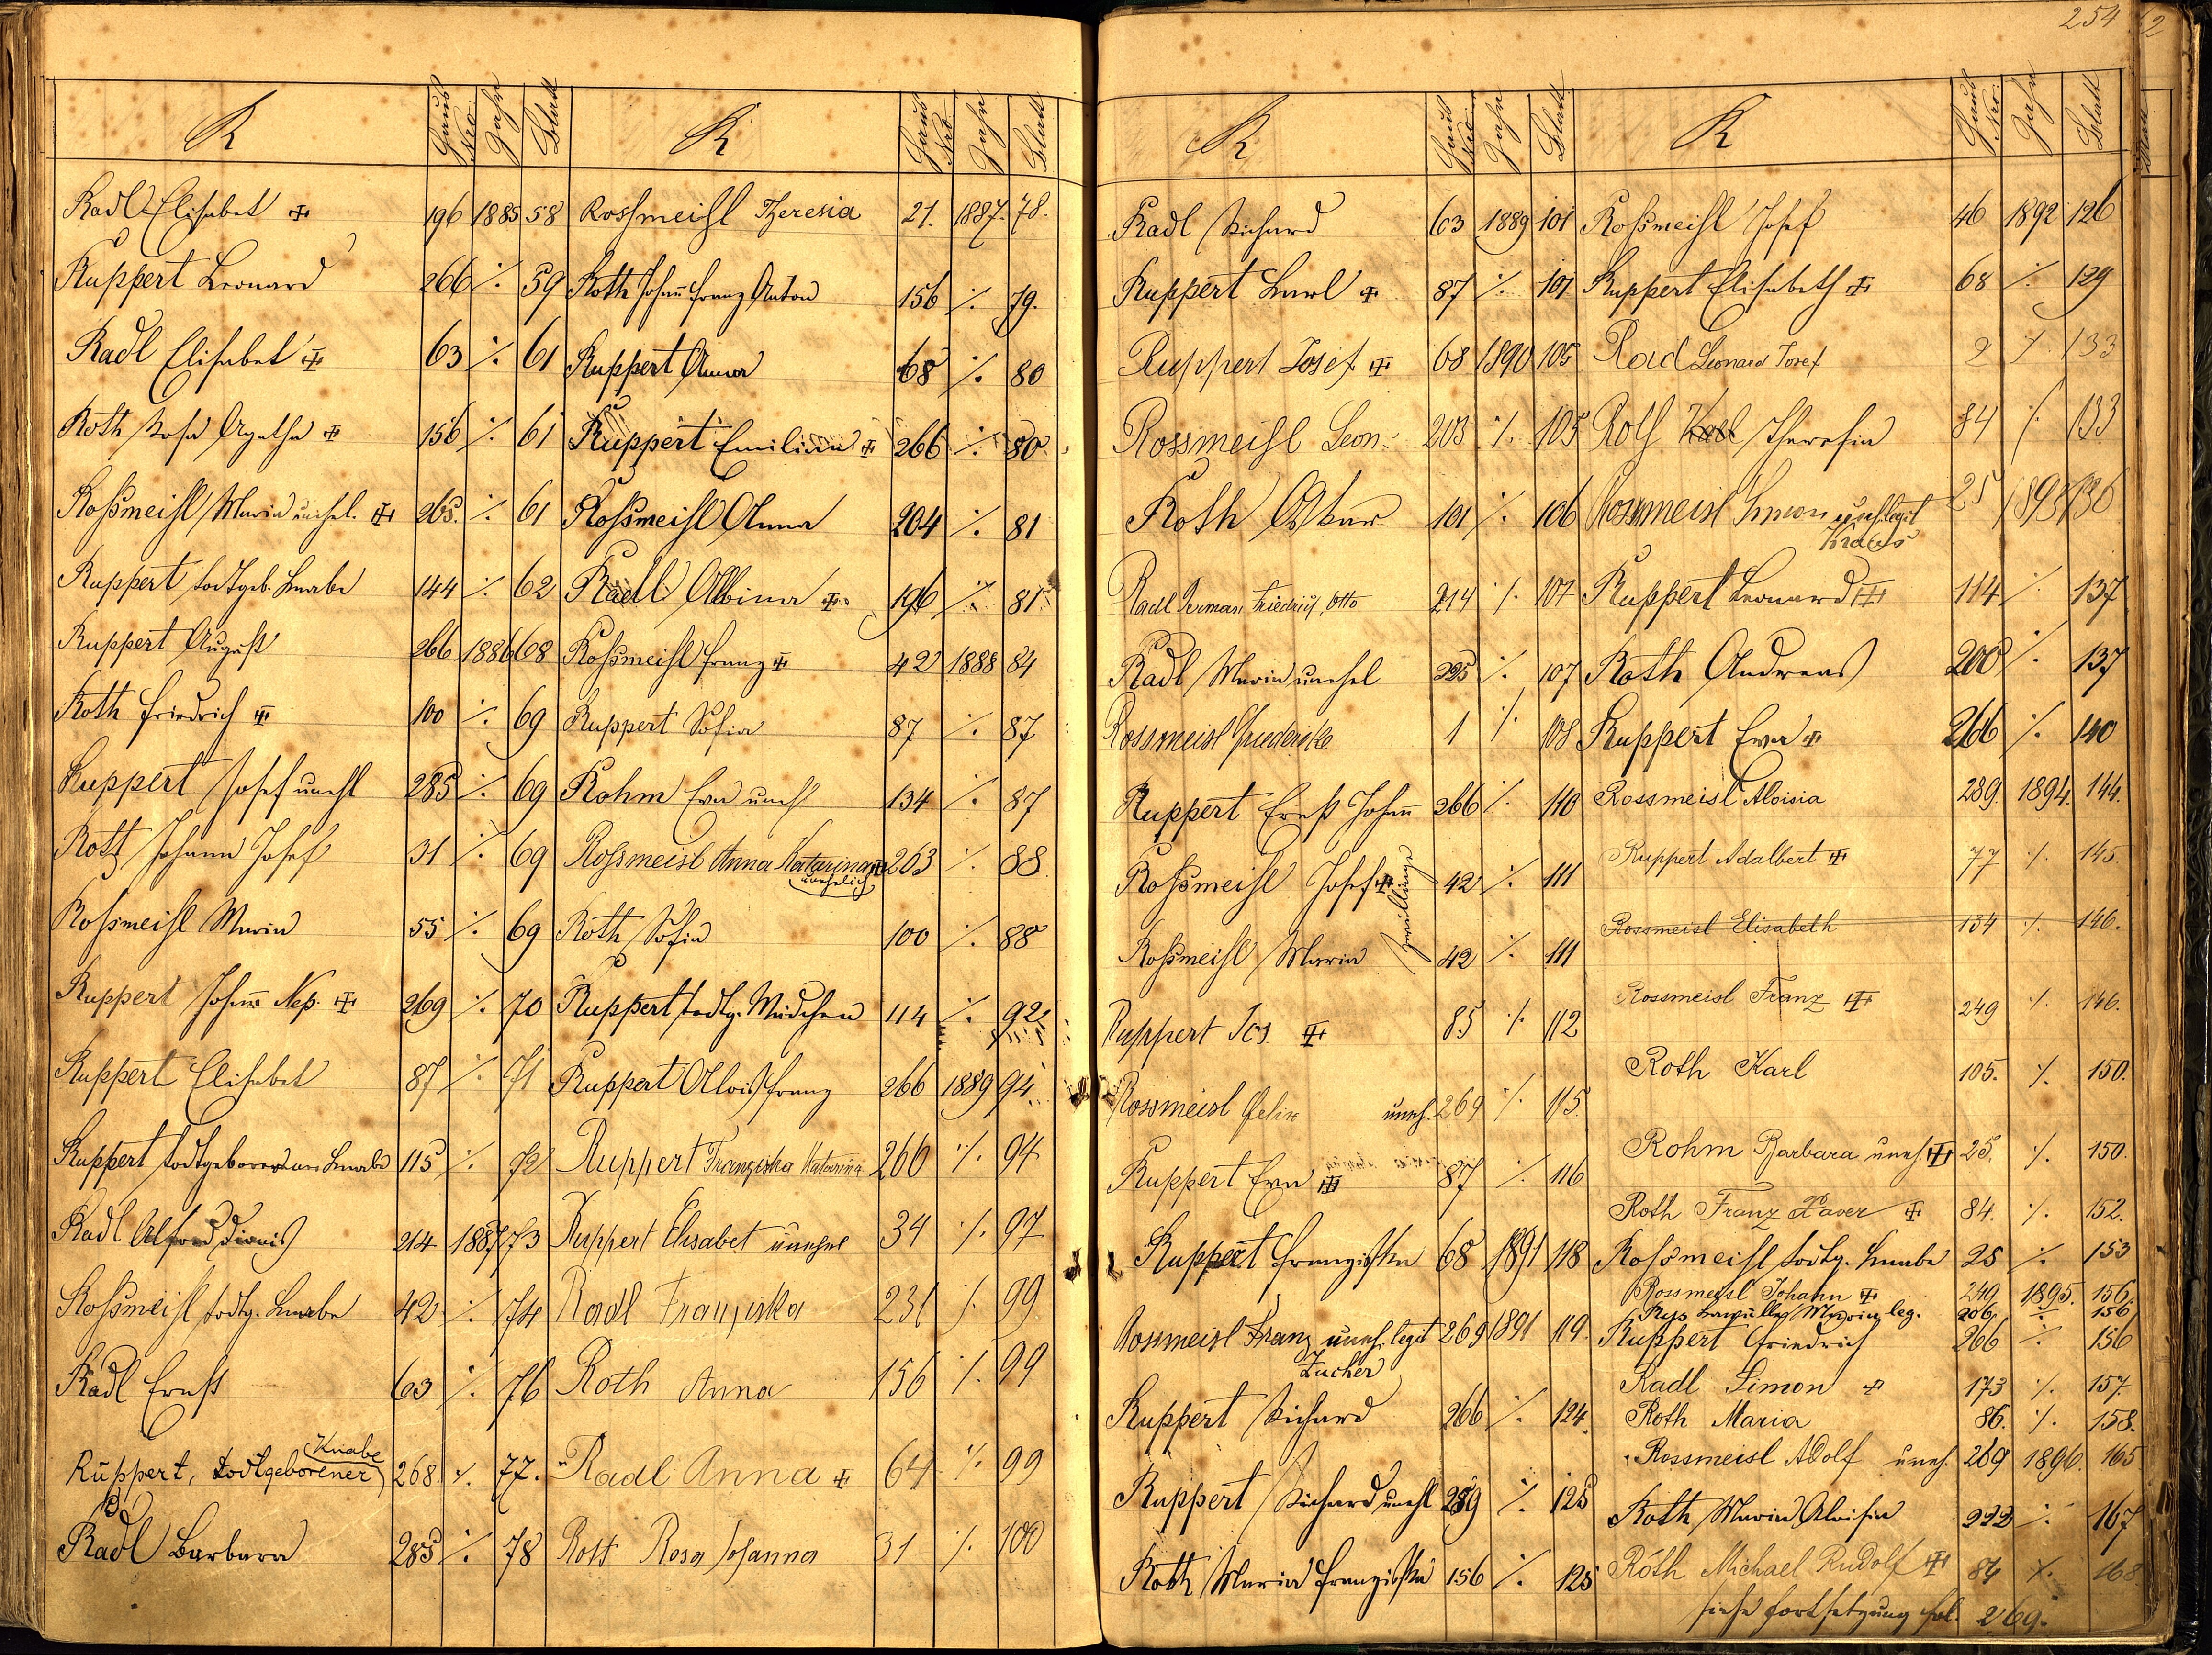 254
R Haus Nro. Jahr Blatt
Radl Elisabet 196 1885 58
Ruppert Leonard 266 ⁒ 59
Radl Elisabet 63 ⁒ 61
Roth Rosa Agatha 156 ⁒ 61
Roßmeisl Maria unehel. 265. ⁒ 61
Ruppert todtgeb. Knabe 144 ⁒ 62
Ruppert August 266 1886 68
Roth Friedrich 100 ⁒ 69
Ruppert Josef unehl 285 ⁒ 69
Roth Johann Josef 31 ⁒ 69
Roßmeisl Maria 55 ⁒ 69
Ruppert Johann Nep. 269 ⁒ 70
Ruppert Elisabet 87 ⁒ 71
Ruppert todtgeborener Knabe 115 ⁒ 72
Radl Alfred Dionis 214 1887 73
Roßmeisl todtg. Knabe 42 ⁒ 74
Radl Ernst 63 ⁒ 76
Ruppert, todtgeborener Knabe 268. ⁒ 77.
Radl Barbara 285 ⁒ 78
R Haus Nro. Jahr Blatt
Rossmeisl Theresia 21. 1887. 78.
Roth Johann Franz Anton 156 ⁒ 79.
Ruppert Anna 68 ⁒ 80
Ruppert Emiliana 266 ⁒ 80
Roßmeisl Anna 204 ⁒ 81
Radl Albina 196 ⁒ 81
Roßmeisl Franz 42 1888 84
Ruppert Sofia 87 ⁒ 87
Rohm Eva unehl 134 ⁒ 87
Rossmeisl Anna Katarina unehelich 263 ⁒ 88
Roth Sofia 100 ⁒ 88
Ruppert todtg. Mädchen 114 ⁒ 92
Ruppert Alois Franz 266 1889 94
Ruppert Franziska Katarina 266 ⁒ 94
Ruppert Elisabet unehel 34 ⁒ 97
Radl Franziska 231 ⁒ 99
Roth Anna 156 ⁒ 99
Radl Anna 64 ⁒ 99
Roth Rosa Johanna 31 ⁒ 100
R Haus Nro. Jahr Blatt
Radl Richard 63 1889 101
Ruppert Karl 87 ⁒ 101
Ruppert Josef 68 1890 105
Rossmeisl Leon. 203 ⁒ 105
Roth Oskar 101 ⁒ 106
Radl Herman Friedrich, Otto 214 ⁒ 107
Radl Maria unehel 225 ⁒ 107
Rossmeisl Friederike 1 ⁒ 108
Ruppert Ernst Johann 266 ⁒ 110
Roßmeisl Josef 42 ⁒ 111
Zwillinge
Roßmeisl Maria 42 ⁒ 111
Ruppert Jos 85 ⁒ 112
Rossmeisl Felix uneh. 269 ⁒ 115.
Ruppert Eva 87 ⁒ 116
Ruppert Franziska 68 1891 118
Rossmeisl Franz uneh. legit 269 1891 119.
Zucher
Ruppert Richard 266 ⁒ 124.
Ruppert Richard unehl 289 ⁒ 125
Roth Maria Franziska 156 ⁒ 125
R Haus Nro. Jahr Blatt
Roßmeisl Josef 46 1892 126
Ruppert Elisabeth 68 ⁒ 129
Rad Leonard Josef 2 ⁒ 133
Roth Theresia 84 ⁒ 133
Rossmeisl Simon uneh legit 25 1893 136
Kraus
Ruppert Leonard 114 ⁒ 137
Roth Andreas 200 ⁒ 137
Ruppert Eva 266 ⁒ 140
Rossmeisl Aloisia 289. 1894. 144.
Ruppert Adalbert 77 ⁒ 145.
Rossmeisl Elisabeth 134 ⁒ 146.
Rossmeisl Franz 249 ⁒ 146.
Roth Karl 105. ⁒ 150.
Rohm Barbara uneh. 25. ⁒ 150.
Roth Franz Xaver 84. ⁒ 152.
Roßmeisl todtg. Knabe 25 ⁒ 153
Rossmeisl Johann 249 1895. 156.
Maria leg. 206. ⁒ 156
Ruppert Friedrich 266 ⁒ 156
Radl Simon 173 ⁒ 157.
Roth Maria 86. ⁒ 158.
Rossmeisl Adolf uneh. 269 1896. 165
Roth Maria Aloisia 222 ⁒ 167
Roth Michael Rudolf 84 ⁒ 168
siehe Fortsetzung fol. 269.